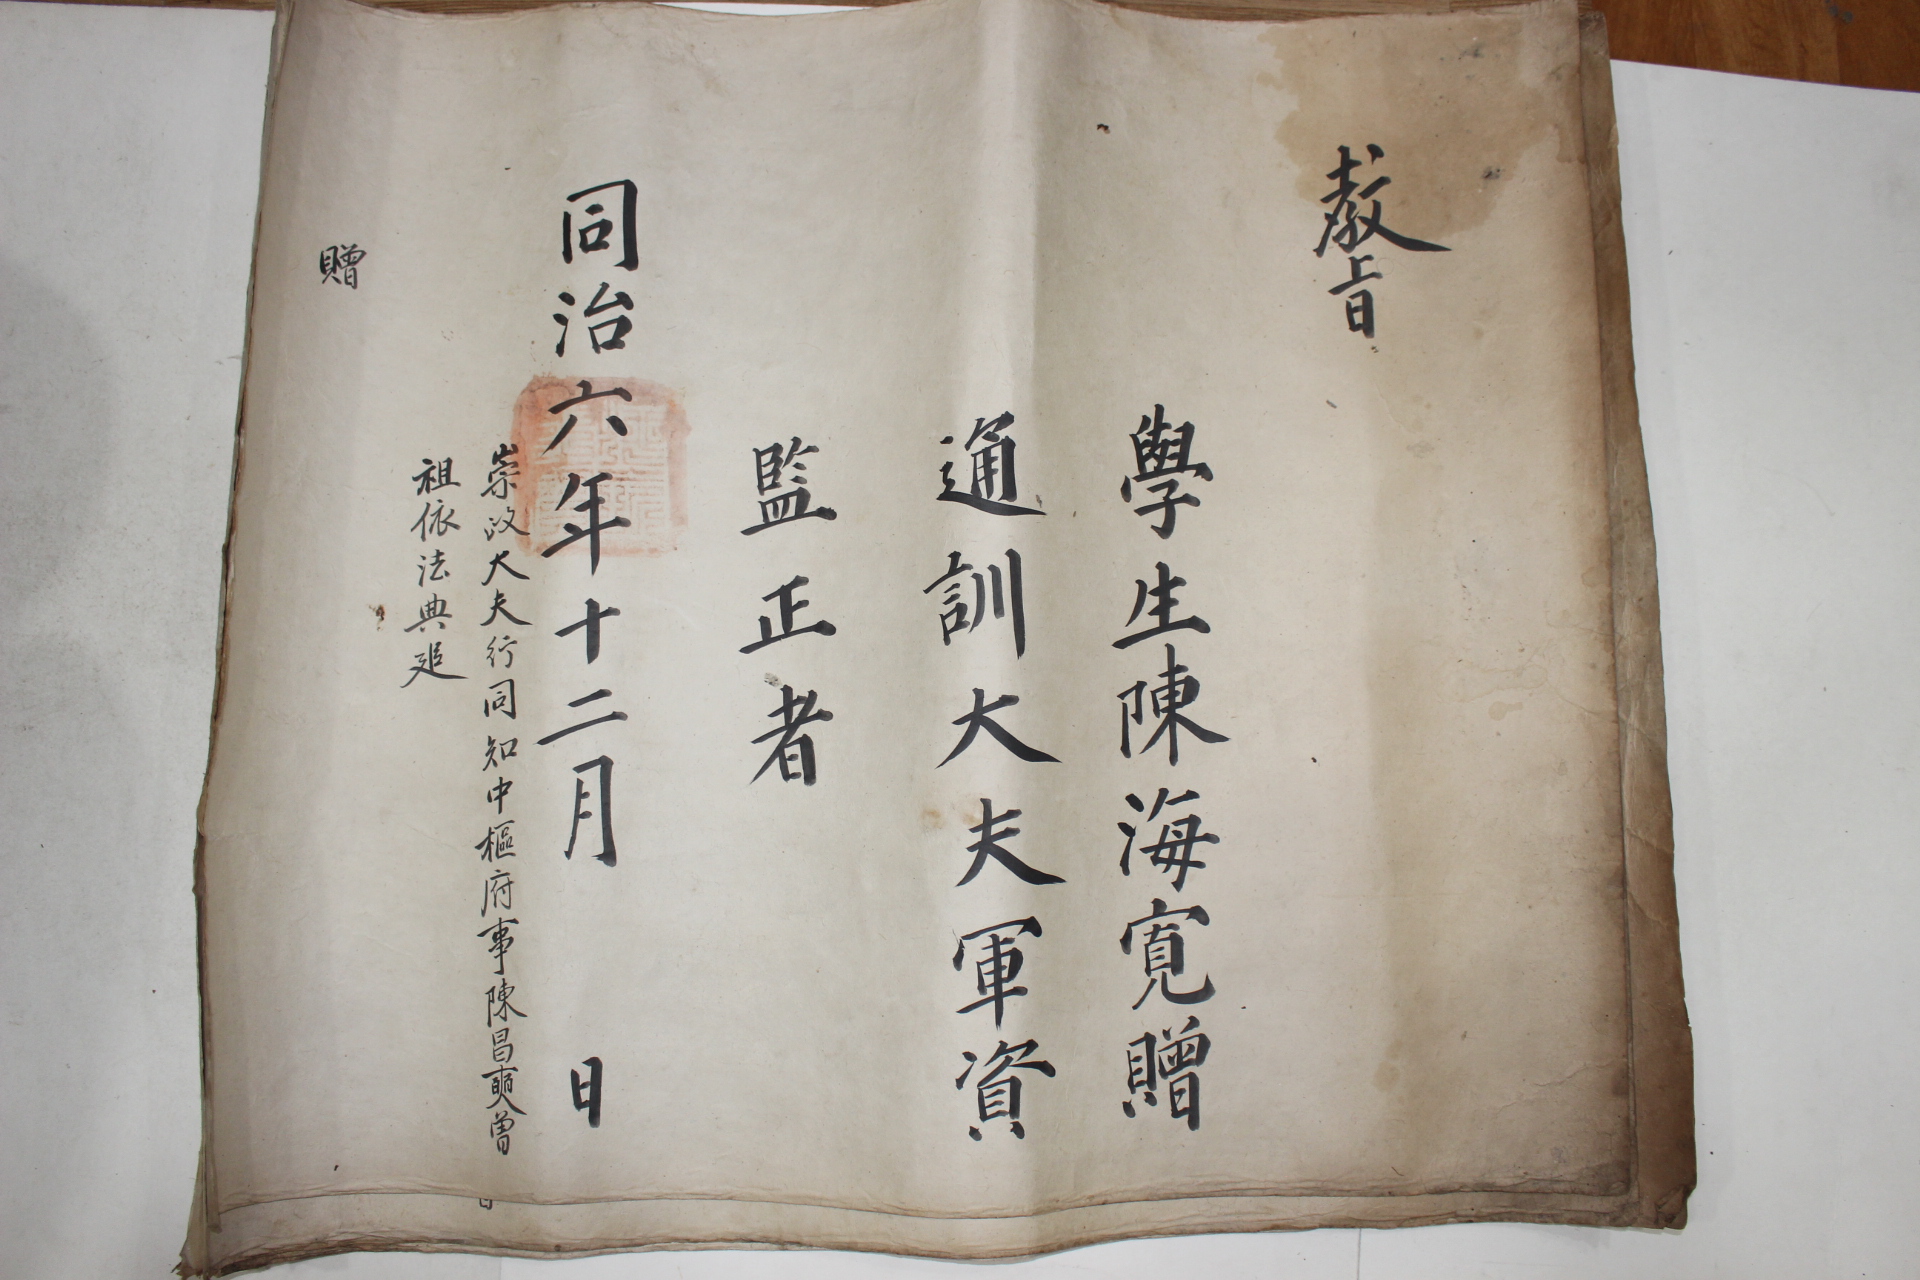 教旨
學生陳海寬贈
通訓大夫軍資
監正者
同治六年十二月 日
崇政大夫行同知中樞府事陳昌奭曾
祖依法典追
贈